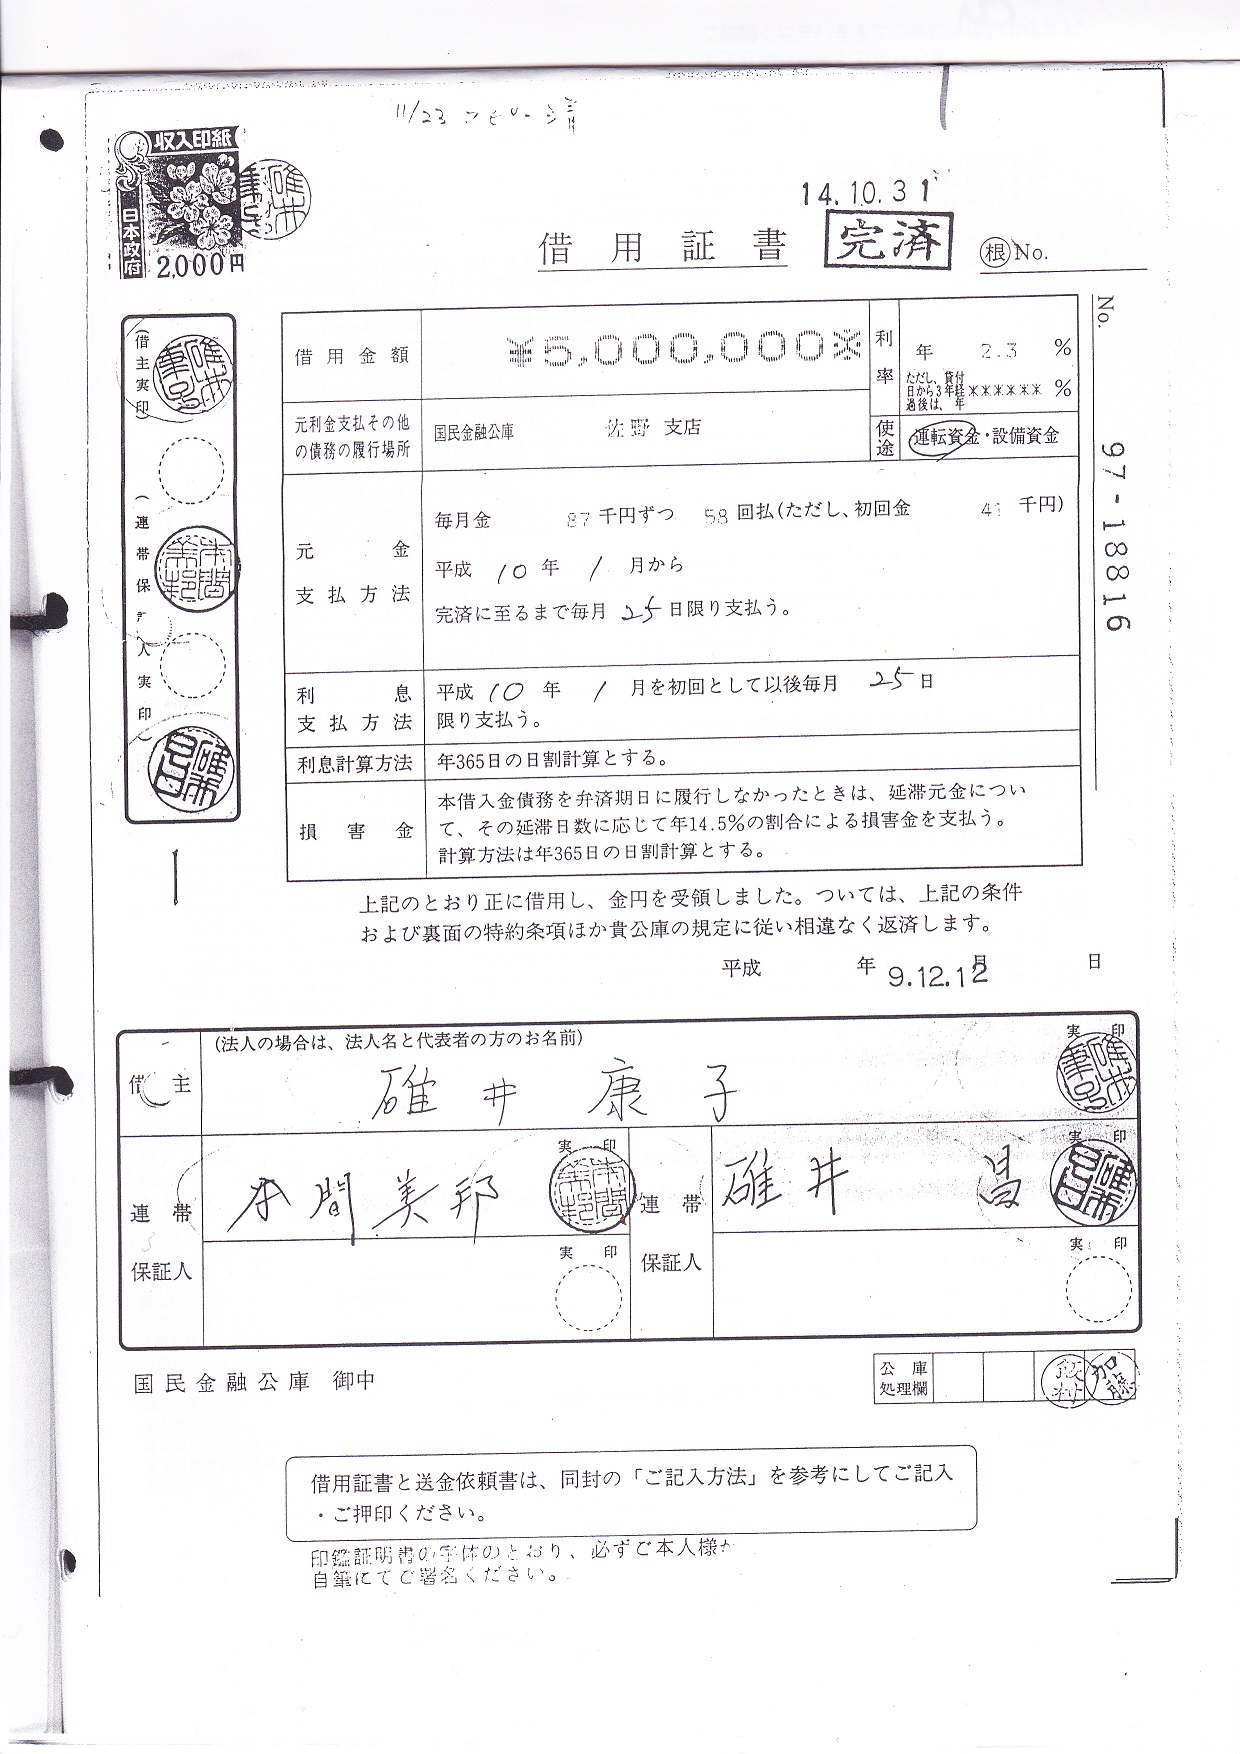 11/23 コピー済
収入印紙
日本政府
2,000円
14.10.31
借用証書
完済
根 No.
No. 97-18816
(借主実印)
(連帯保証人実印)
借用金額
¥5,000,000※
利率
年 2.3 %
ただし、貸付
日から3年経 ****** %
過後は、年
元利金支払その他
の債務の履行場所
国民金融公庫 佐野 支店
使途
運転資金・設備資金
元金
支払方法
毎月金 87 千円ずつ 58 回払(ただし、初回金 41 千円)
平成 10 年 1 月から
完済に至るまで毎月 25 日限り支払う。
利息
支払方法
平成 10 年 1 月を初回として以後毎月 25 日
限り支払う。
利息計算方法
年365日の日割計算とする。
損害金
本借入金債務を弁済期日に履行しなかったときは、延滞元金につい
て、その延滞日数に応じて年14.5%の割合による損害金を支払う。
計算方法は年365日の日割計算とする。
上記のとおり正に借用し、金円を受領しました。ついては、上記の条件
および裏面の特約条項ほか貴公庫の規定に従い相違なく返済します。
平成 年 月 日
9.12.12
(法人の場合は、法人名と代表者の方のお名前)
実印
借主
碓井 康子
連帯
保証人
本間美邦
実印
実印
連帯
保証人
碓井 昌
実印
実印
国民金融公庫 御中
公庫
処理欄
飯村
加藤
借用証書と送金依頼書は、同封の「ご記入方法」を参考にしてご記入
・ご押印ください。
印鑑証明書の字体のとおり、必ずご本人様が
自筆にてご署名ください。